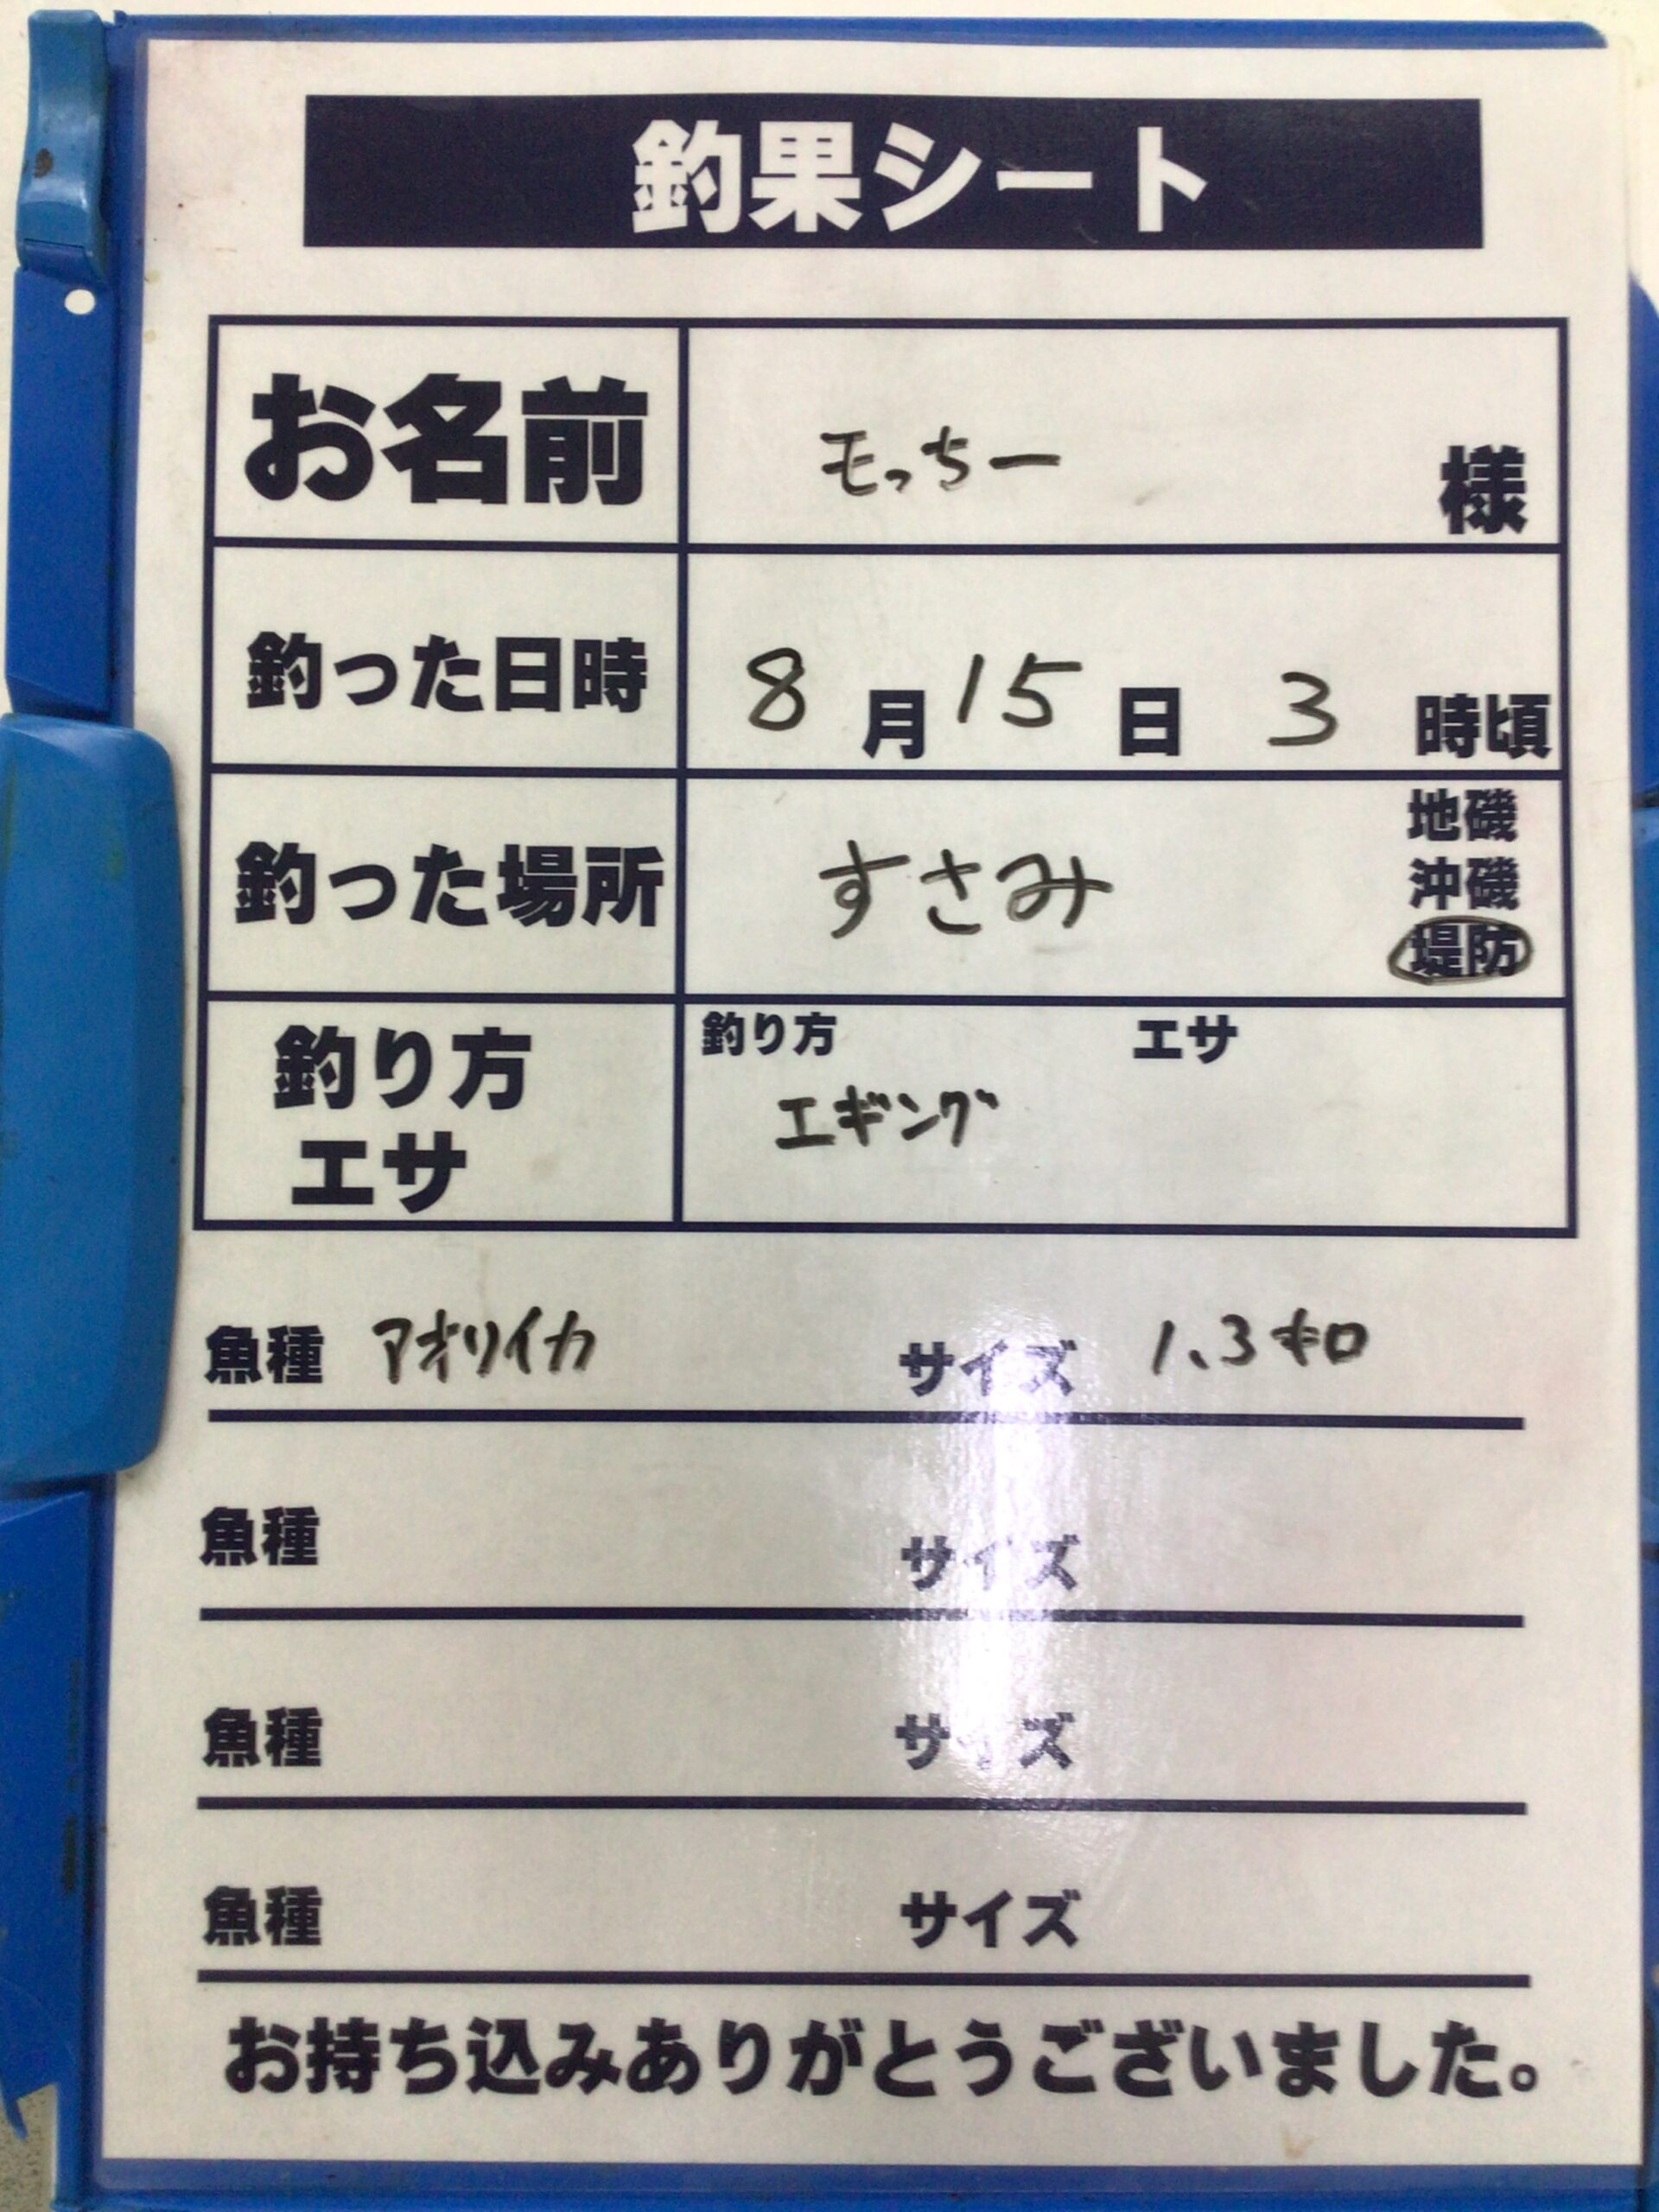 釣果シート
お名前 もっちー 様
釣った日時 8月15日 3時頃
釣った場所 すさみ 地磯
沖磯
堤防
釣り方 エサ 釣り方 エサ
エギング
魚種 アオリイカ サイズ 1.3キロ
魚種 サイズ
魚種 サイズ
魚種 サイズ
お持ち込みありがとうございました。